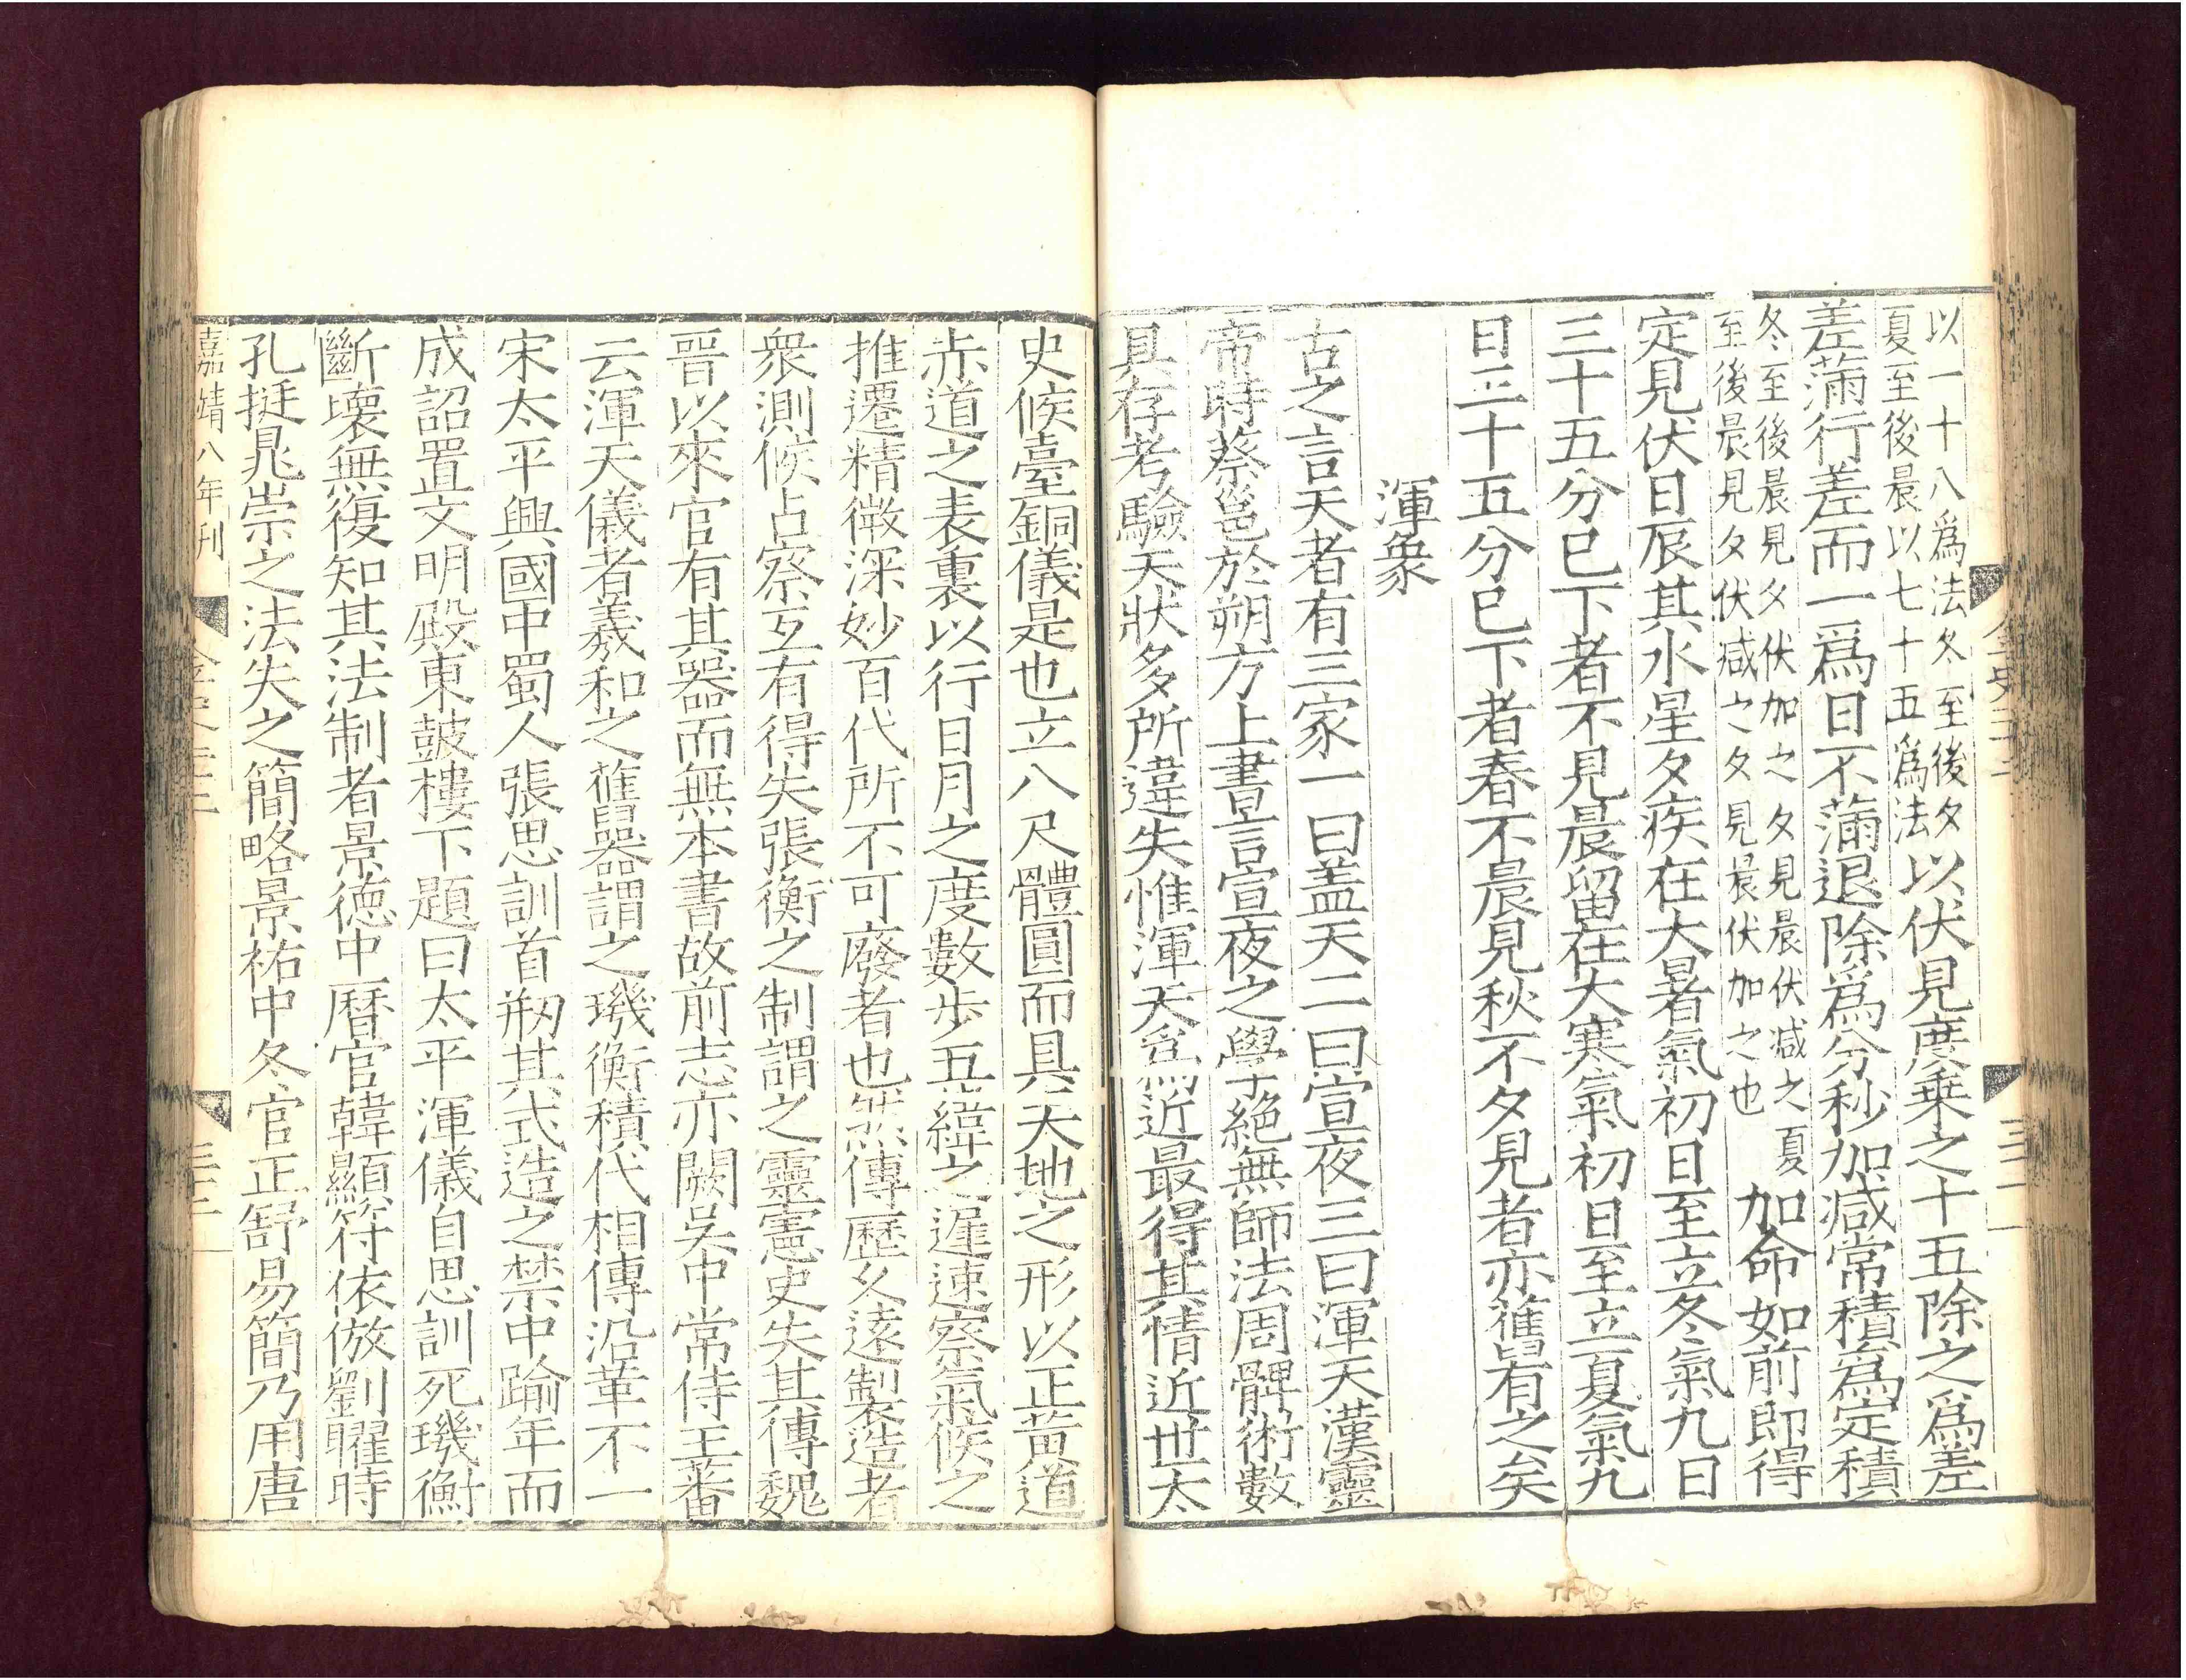 以一十八爲法冬至後夕
夏至後晨以七十五爲法
以伏見度乗之十五除之爲差
差滿行差而一爲日不滿退除爲分秒加减常積爲定積
冬至後晨見夕伏加之夕見晨伏减之夏
至後晨見夕伏减之夕見晨伏加之也
加命如前即得
定見伏日辰其水星夕疾在大暑氣初日至立冬氣九日
三十五分已下者不見晨留在大寒氣初日至立夏氣九
日三十五分已下者春不晨見秋不夕見者亦舊有之矣
渾象
古之言天者有三家一曰盖天二曰宣夜三曰渾天漢靈
帝時蔡邕於朔方上書言宣夜之學絶無師法周髀術數
具存考驗天狀多所違失惟渾天爲近最得其情近世太
史候臺銅儀是也立八尺體圓而具天地之形以正黄道
赤道之表裏以行日月之度數步五緯之遲速察氣候之
推遷精微深妙百代所不可廢者也然傳歷久遠製造者
衆測候占察互有得失張衡之制謂之靈憲史失其傳魏
晉以來官有其器而無本書故前志亦闕吴中常侍王蕃
云渾天儀者羲和之舊器謂之璣衡積代相傳沿革不一
宋太平興國中蜀人張思訓首剏其式造之禁中踰年而
成詔置文明殿東鼓樓下題曰太平渾儀自思訓死璣衡
斷壞無復知其法制者景徳中曆官韓顯符依倣劉曜時
孔挺晁崇之法失之簡略景祐中冬官正舒易簡乃用唐
嘉靖八年刊